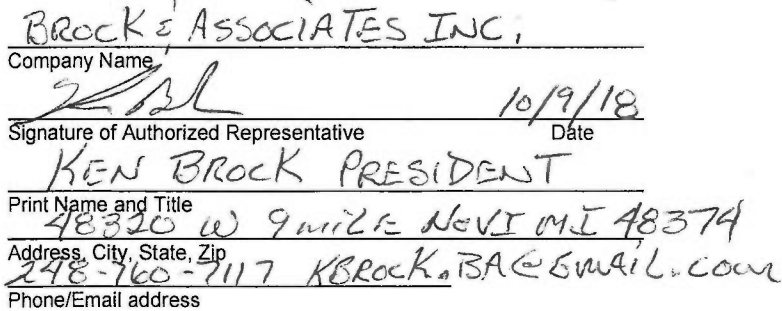 BROCK & ASSOCIATES INC.
Company Name
10/9/18
Signature of Authorized Representative Date
KEN BROCK PRESIDENT
Print Name and Title
48320 W 9 MILE NOVI MI 48374
Address, City, State, Zip
248-760-7117 KBROCK.BA@GMAIL.COM
Phone/Email address